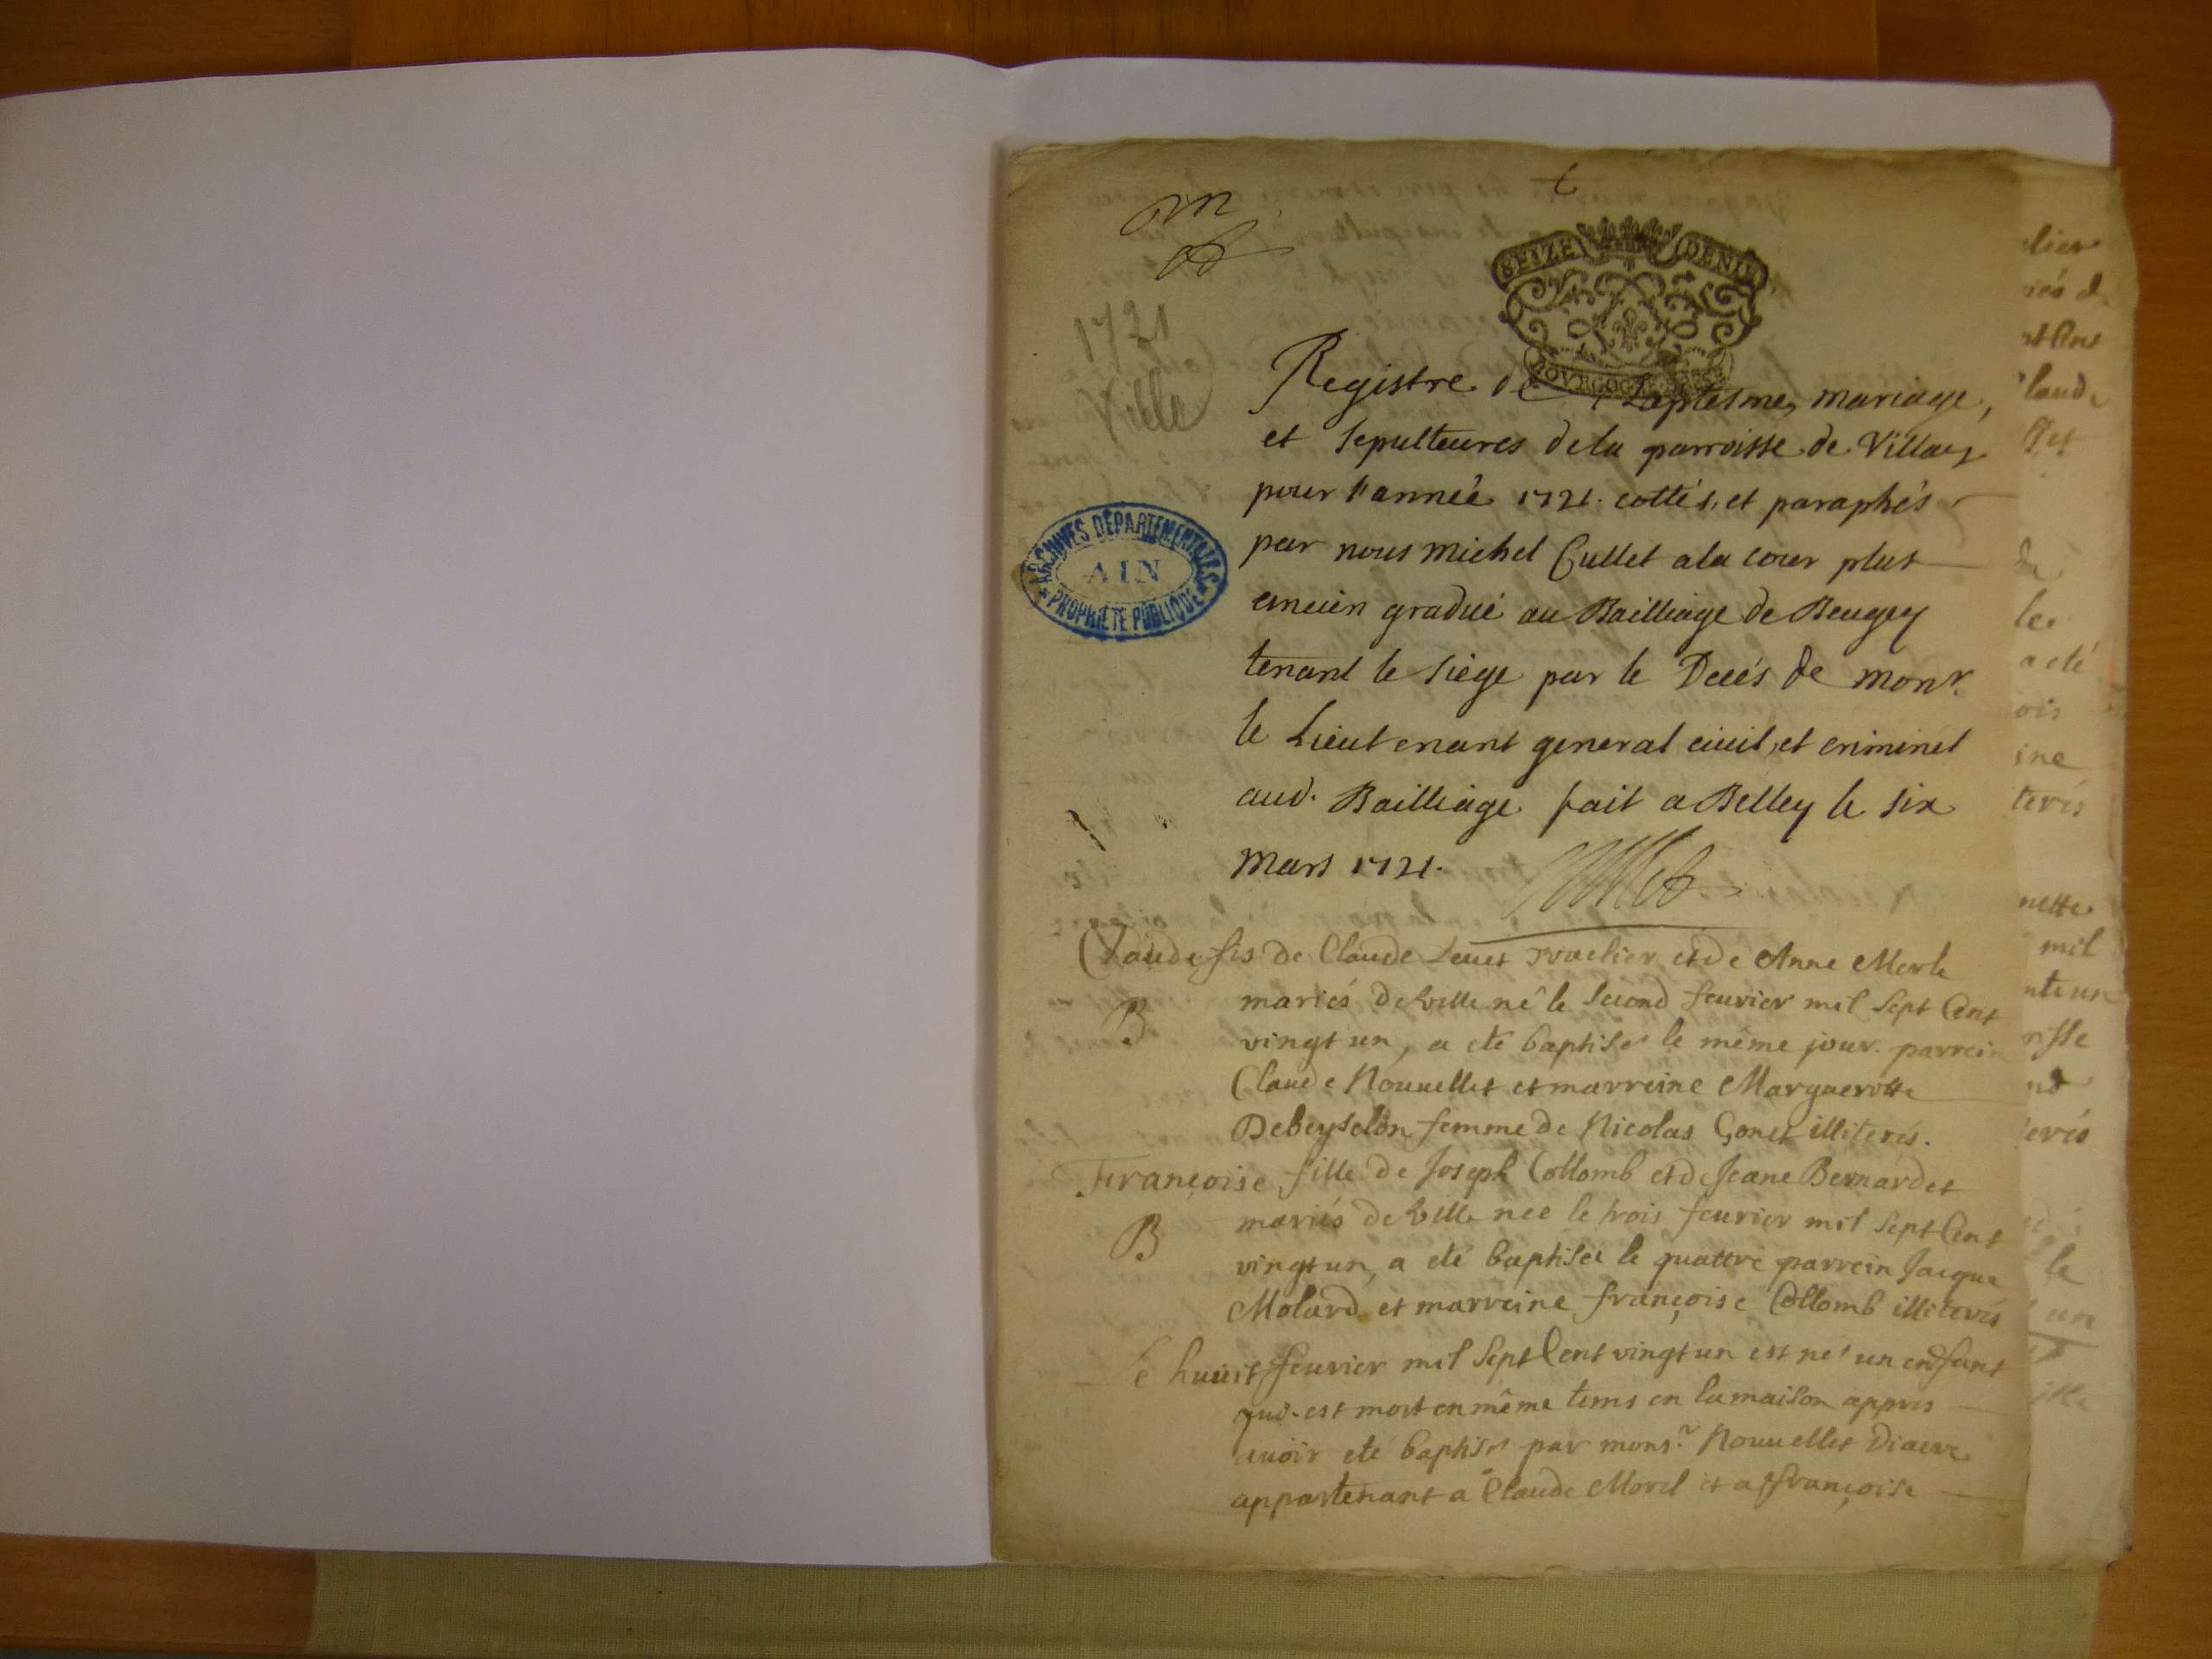 SEIZE DENIE
BOVRGOGNE
1721
Ville
Registre de Baptesme, mariage,
et Sepulteures de la parroisse de Villaey
pour l'année 1721. cottés, et paraphés
par nous michel Cullet a la cour plus
ancien gradué au Bailliage de Beugey
tenant le siege par le Decés de monr.
le Lieutenant general civil, et criminel
aud. Bailliage fait a Belley le six
mars 1721.
ARCHIVES DEPARTEMENTALES
AIN
PROPRIETE PUBLIQUE
Claude fis de Claude et de Anne Merle
mariés de Ville né le second feuvrier mil sept Cent
B
vingt un, a eté baptisé le même jour. parrein
Claude Nouuellet et marreine Marguerotte
Debeyselon femme de Nicolas Gonet illiterés.
Françoise fille de Joseph Collomb et de Jeane Bernardet
mariés de Ville nee le trois feuvrier mil sept Cent
B
vingt un, a eté baptisée le quattre parrein Jacque
Molard et marreine françoise Collomb illiterés
Le huuit feuvrier mil sept Cent vingt un est né un enfant
qui est mort en même tems en la maison appres
auoir eté baptisé par monsr. Nouuellet Diacre
appartenant a Claude Morel et a françoise